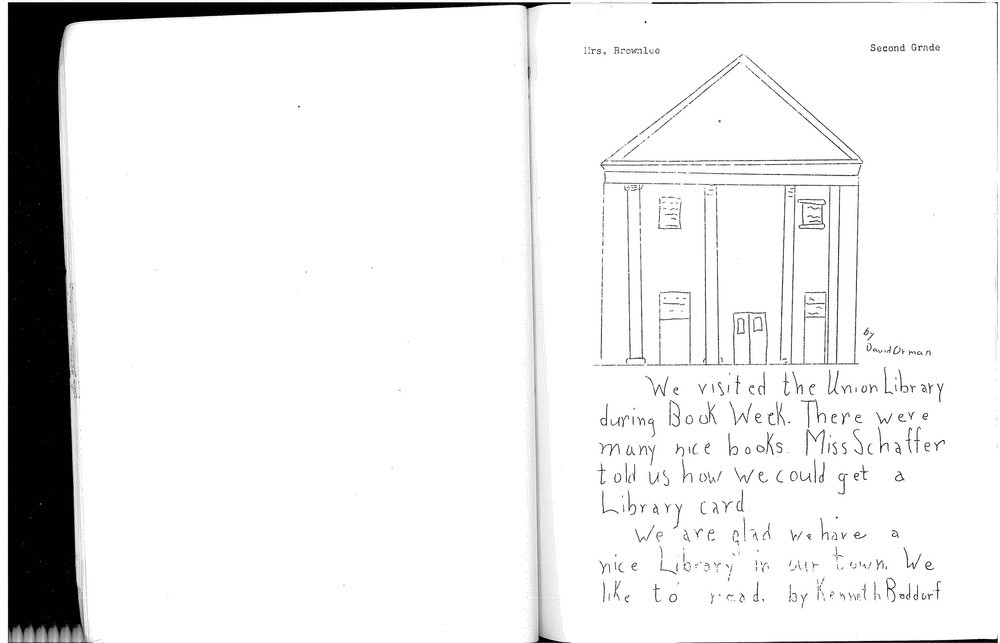 Mrs. Brownlee
Second Grade
by
David Orman
We visited the Union Library
during Book Week. There were
many nice books. Miss Schaffer
told us how we could get a
Library card
We are glad we have a
nice Library in our town. We
like to read. by Kenneth Boddorf